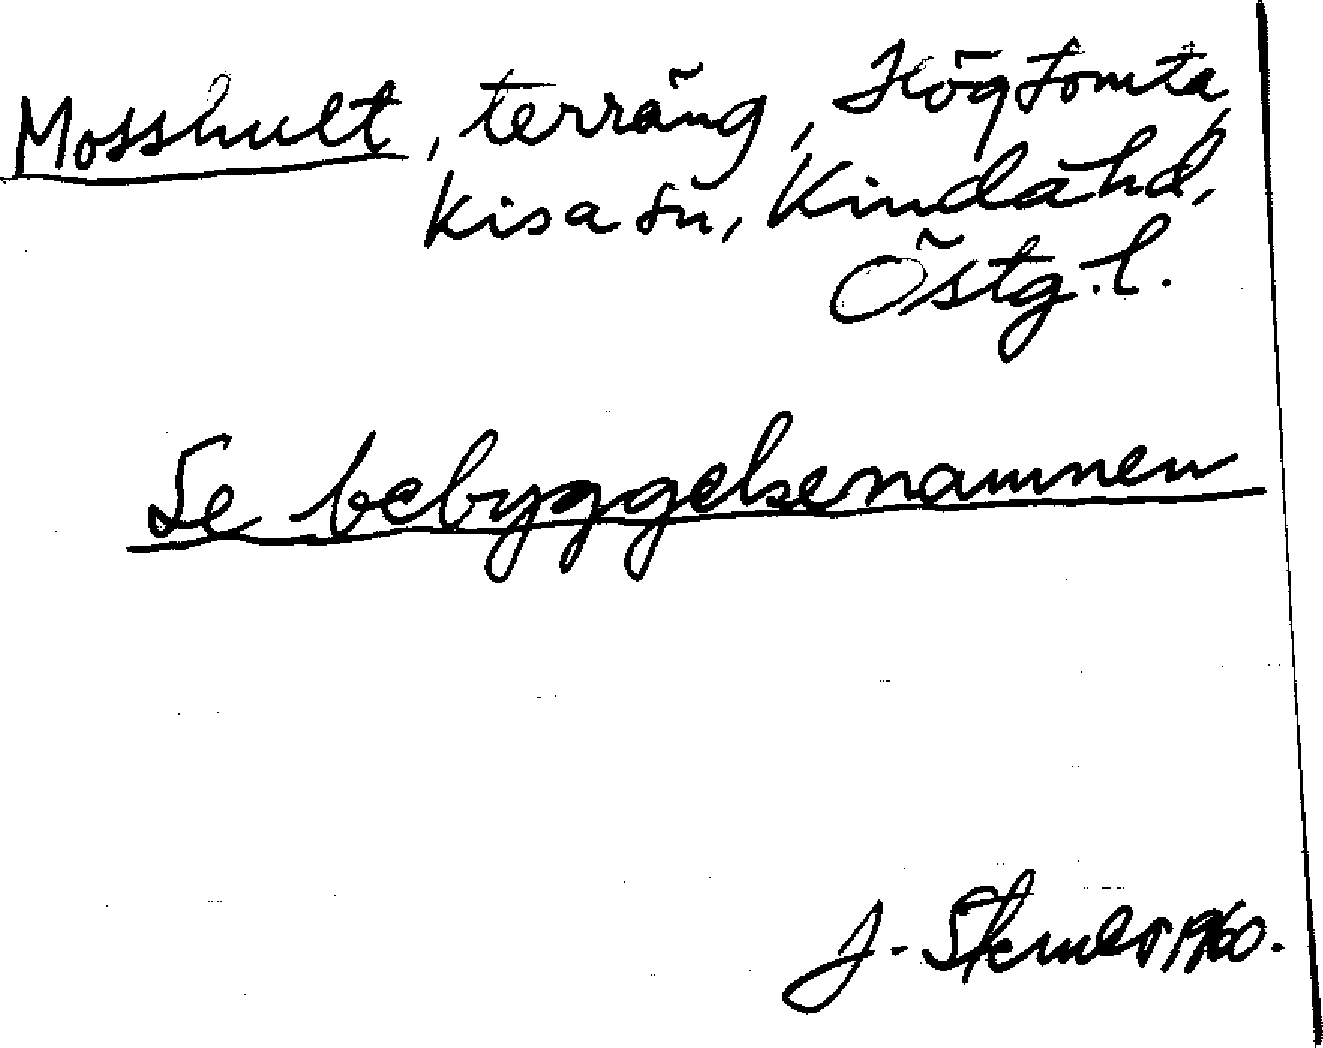 Mosshult, terräng, Högtomta,
Kisa sn, Kinda hd,
Östg. l.
Se bebyggelsenamnen
J. 1960.